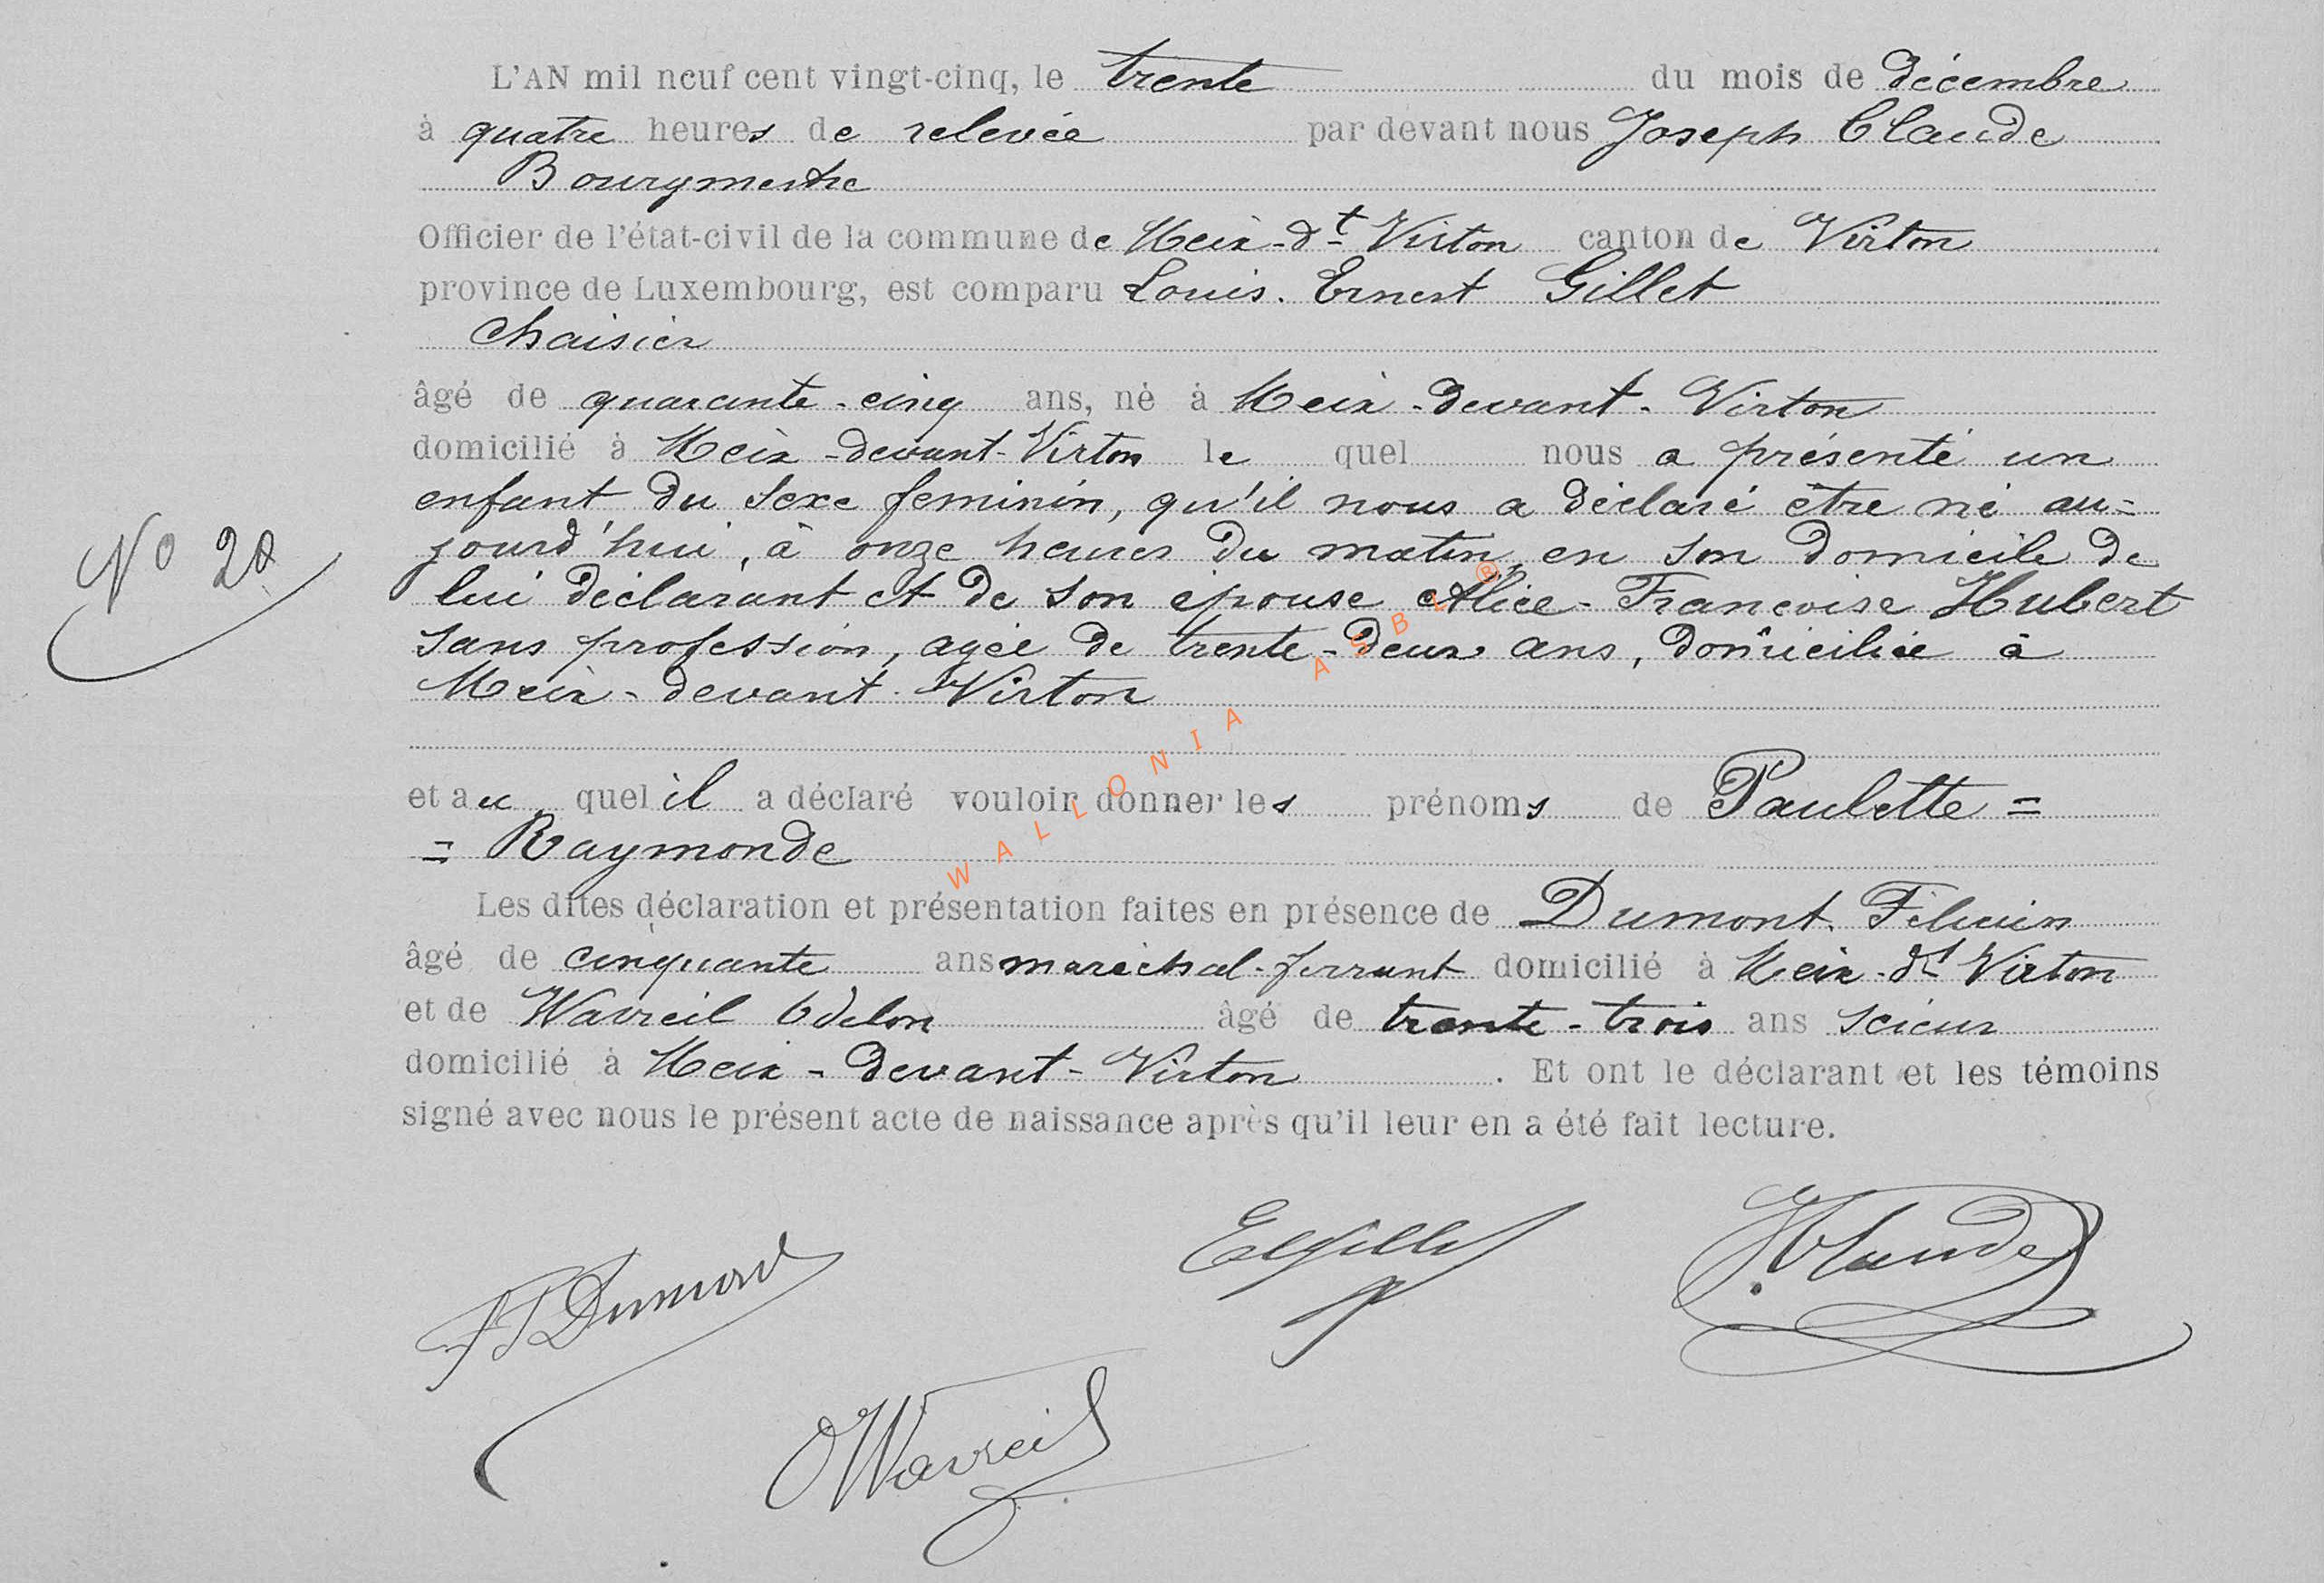 L'AN mil neuf cent vingt-cinq, le trente du mois de décembre
à quatre heures de relevée par devant nous Joseph Claude
Bourgmestre
Officier de l'état-civil de la commune de Meix-dt Virton canton de Virton
province de Luxembourg, est comparu Louis. Ernest Gillet
Chaisier
âgé de quarante-cinq ans, né à Meix-devant-Virton
domicilié à Meix-devant-Virton le quel nous a présenté un
enfant du sexe feminin, qu'il nous a déclaré être né au=
No 20
jourd'hui, à onze heures du matin, en son domicile de
lui déclarant et de son épouse Alice-Françoise Hubert
sans profession, agée de trente-deux ans, domiciliée à
Meix-devant-Virton
et au quel il a déclaré vouloir donner les prénoms de Paulette =
= Raymonde
WALLONIA ASBL ®
Les dites déclaration et présentation faites en présence de Dumont
âgé de cinquante ans maréchal-ferrant domicilié à Meix-dt Virton
et de Wavreil Odelon âgé de trente-trois ans scieur
domicilié à Meix-devant-Virton. Et ont le déclarant et les témoins
signé avec nous le présent acte de naissance après qu'il leur en a été fait lecture.
EGillet
J.Claude
Dumont
OWavreil